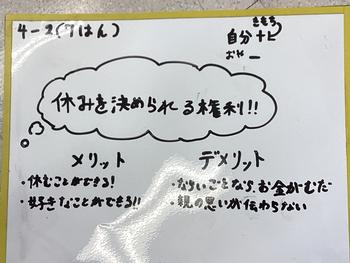 4-2(7はん)
きもち
自分 +と
おや ー
休みを決められる権利!!
メリット
・休むことができる!
・好きなことができる!!
デメリット
・ならいごとなら、お金がむだ
・親の思いが伝わらない